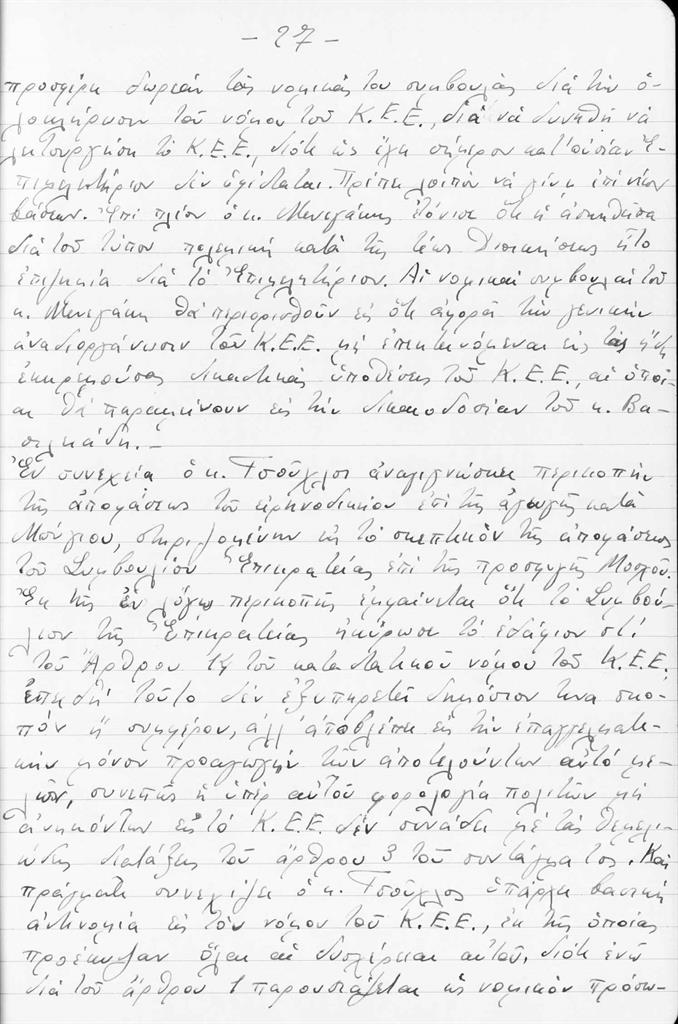 - 27 -
προσφέρη δωρεάν τάς νομικάς του συμβουλάς διά τήν ὁ-
λοκλήρωσιν τοῦ νόμου τοῦ Κ.Ε.Ε., διά νά δυνηθῆ νά
λειτουργήση τό Κ.Ε.Ε., διότι ὡς ἔχει σήμερον κατ' οὐσίαν Ἐ-
πιμελητήριον δέν ὑφίσταται. Πρέπει λοιπόν νά γίνῃ ἐπί νέων
βάσεων. Ἐπί πλέον ὁ κ. Μενεγάκης ἐτόνισε ὅτι ἡ ἀσκηθεῖσα
διά τοῦ τύπου πολεμική κατά τῆς τέως Διοικήσεως ἦτο
ἐπιζημία διά τό Ἐπιμελητήριον. Αἱ νομικαί συμβουλαί τοῦ
κ. Μενεγάκη θά περιορισθοῦν εἰς ὅτι ἀφορᾶ τήν γενικήν
ἀναδιοργάνωσιν τοῦ Κ.Ε.Ε. μή ἐπεκτεινόμεναι εἰς τάς ἤδη
ἐκκρεμούσας δικαστικάς ὑποθέσεις τοῦ Κ.Ε.Ε., αἱ ὁποῖ-
αι θά παραμείνουν εἰς τήν δικαιοδοσίαν τοῦ κ. Βα-
σιλειάδη. -
Ἐν συνεχείᾳ ὁ κ. Τσοῦχλος ἀναγιγνώσκει περικοπήν
τῆς ἀποφάσεως τοῦ εἰρηνοδικείου ἐπί τῆς ἀγωγῆς κατά
Μούγιου, στηριζομένην εἰς τό σκεπτικόν τῆς ἀποφάσεως
τοῦ Συμβουλίου Ἐπικρατείας ἐπί τῆς προσφυγῆς Μοσχοῦ.
Ἐκ τῆς ἐν λόγῳ περικοπῆς ἐμφαίνεται ὅτι τό Συμβού-
λιον τῆς Ἐπικρατείας ἠκύρωσε τό ἐδάφιον στ!
τοῦ Ἄρθρου 14 τοῦ καταστατικοῦ νόμου τοῦ Κ.Ε.Ε.
ἐπειδή τοῦτο δέν ἐξυπηρετεῖ δημόσιον τινα σκο-
πόν ἤ συμφέρον, ἀλλ' ἀποβλέπει εἰς τήν ἐπαγγελματι-
κήν μόνον προαγωγήν τῶν ἀποτελούντων αὐτό με-
λῶν, συνεπῶς ἡ ὑπέρ αὐτοῦ φορολογία πολιτῶν μή
ἀνηκόντων εἰς τό Κ.Ε.Ε. δέν συνάδει μέ τάς θεμελι-
ώδεις διατάξεις τοῦ ἄρθρου 3 τοῦ συντάγματος. Καί
πράγματι συνεχίζει ὁ κ. Τσοῦχλος ὑπάρχει βασική
ἀντινομία εἰς τόν νόμον τοῦ Κ.Ε.Ε., ἐκ τῆς ὁποίας
προέκυψαν ὅλαι αἱ δυσχέρειαι αὐτοῦ, διότι ἐνῶ
διά τοῦ ἄρθρου 1 παρουσιάζεται ὡς νομικόν πρόσω-